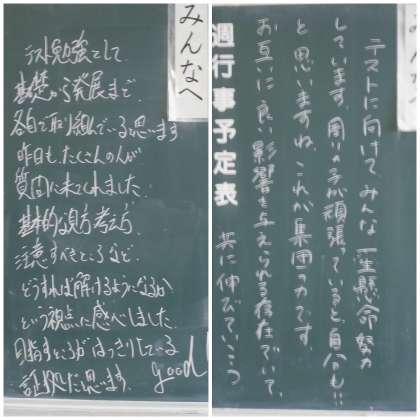 みんなへ
テスト勉強として
基礎から発展まで
各自で取り組んでいる思います
昨日も、たくさんの人が
質問に来てくれました
基本的な見方考え方
注意すべきところなど、
どうすれば解けるようになるか
という視点に感べしました
目指すところがはっきりしている
証拠だ思います。 good!
週行事予定表
テストに向けてみんな一生懸命努力
しています。周りの子が頑張っていると、自分も!!
と思いますね。これが集団の力です
お互いに良い影響を与えられる存在でいて、
共に伸びていこう